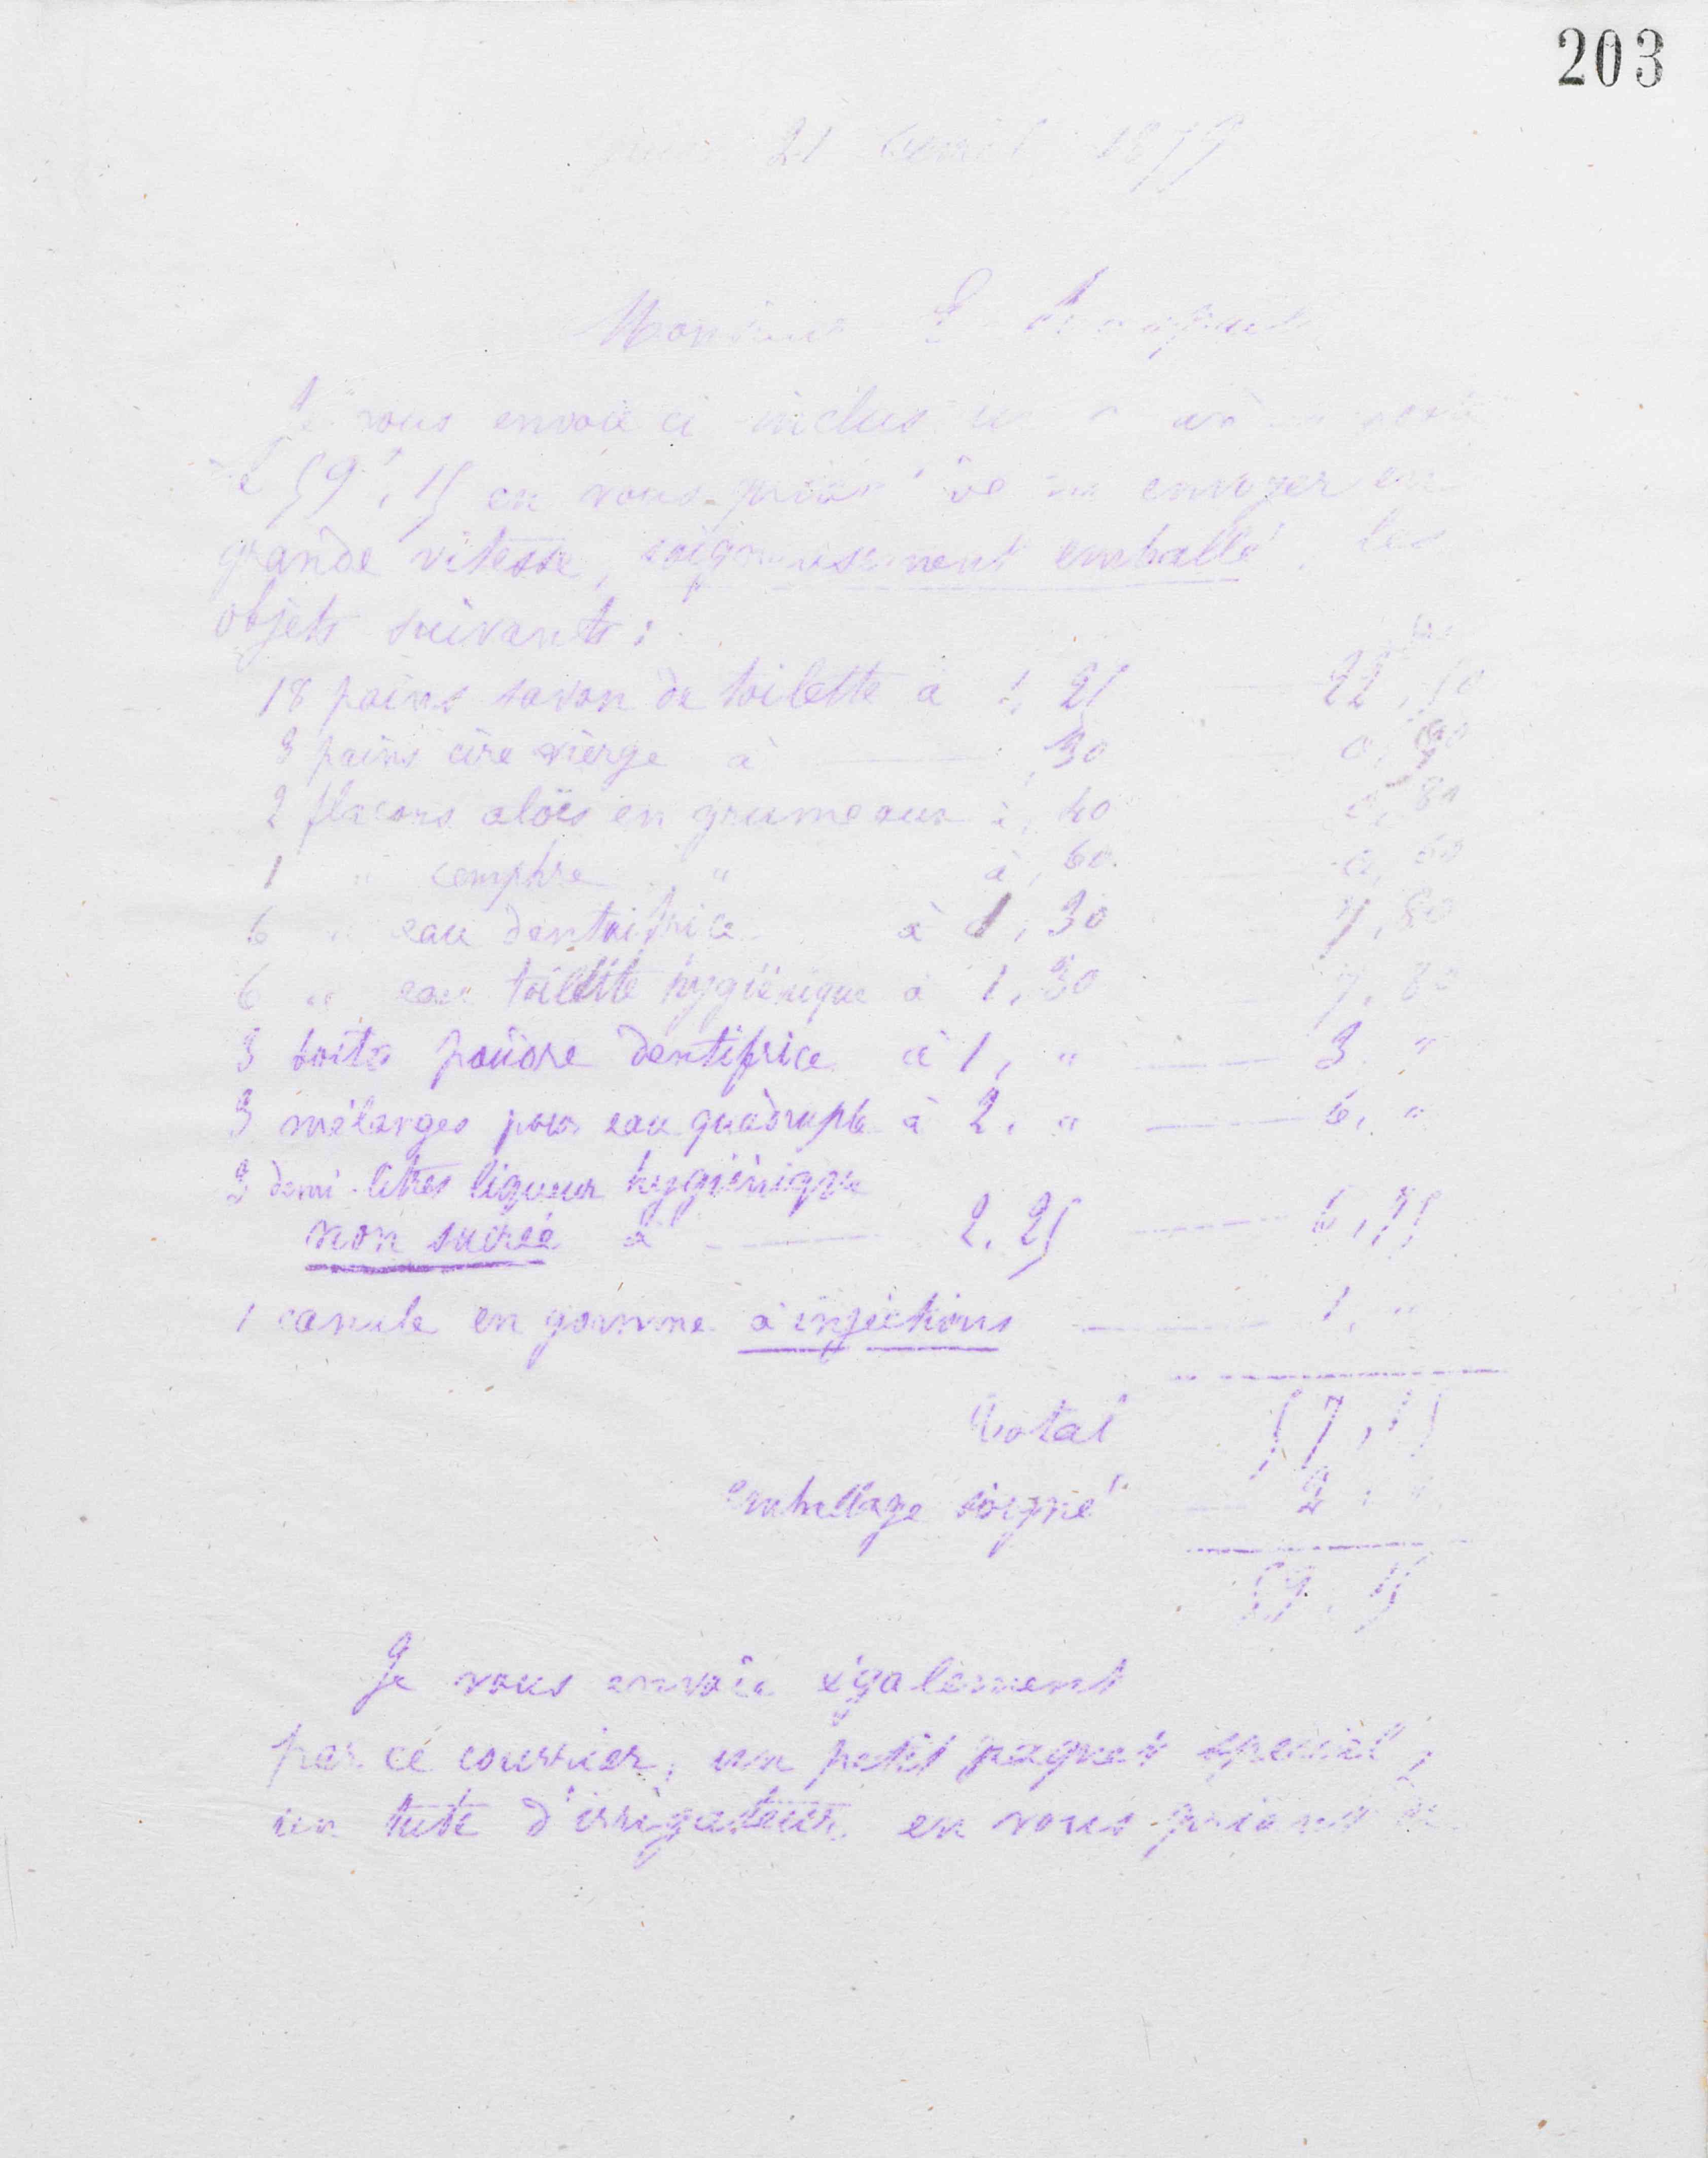 203
21 avril 1879
Monsieur E. Raspail
Je vous envoie ci inclus un
de 59f,15 en vous priant de m' envoyer en
grande vitesse, soigneusement emballé, les
objets suivants :
18 pains savon de toilette à 1, 25 22,50
3 pains cire vierge à — ,30 0,90
2 flacons aloës en grumeaux à ,40 0,80
1 " camphre " à ,60 0,60
6 " eau dentrifrice à 1,30 7,80
6 " eau toilette hygiénique à 1,30 7,80
3 boites poudre dentifrice à 1, " — 3. "
3 mélanges pour eau quadruple à 2. " — 6, "
3 demi-litres liqueur hygiénique
non sucrée à — 2.25 — 6,75
1 canule en gomme à injections — 1, "
Total 57,15
emballage soigné 2, "
59,15
Je vous envoie également
par ce courrier, un petit paquet spécial,
un tube d'irrigateur en vous priant de